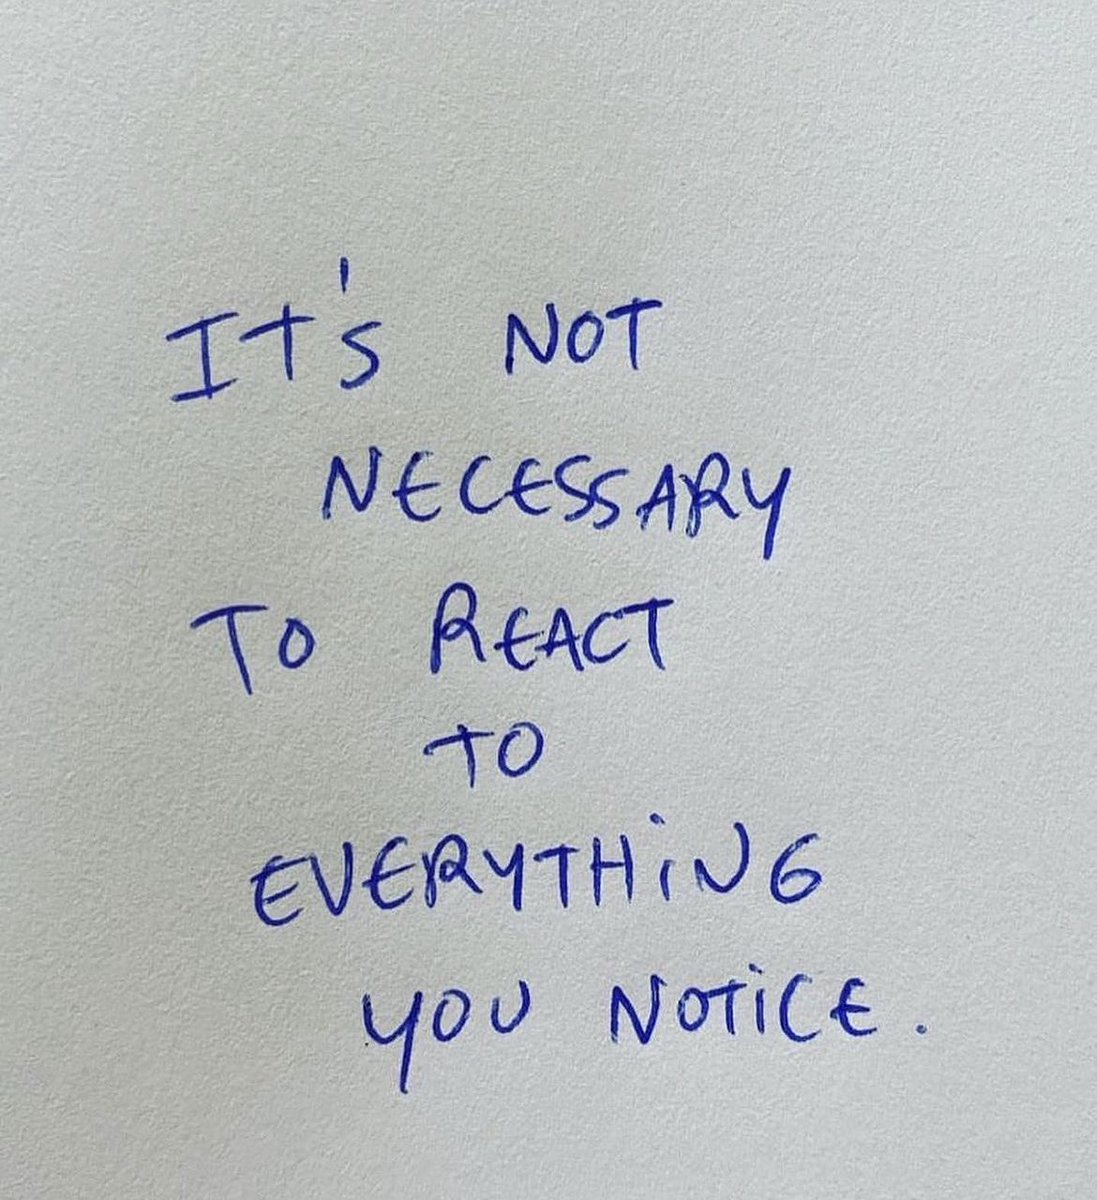 It's NOT
NECESSARY
TO REACT
TO
EVERYTHiNG
YOU NOTiCE.